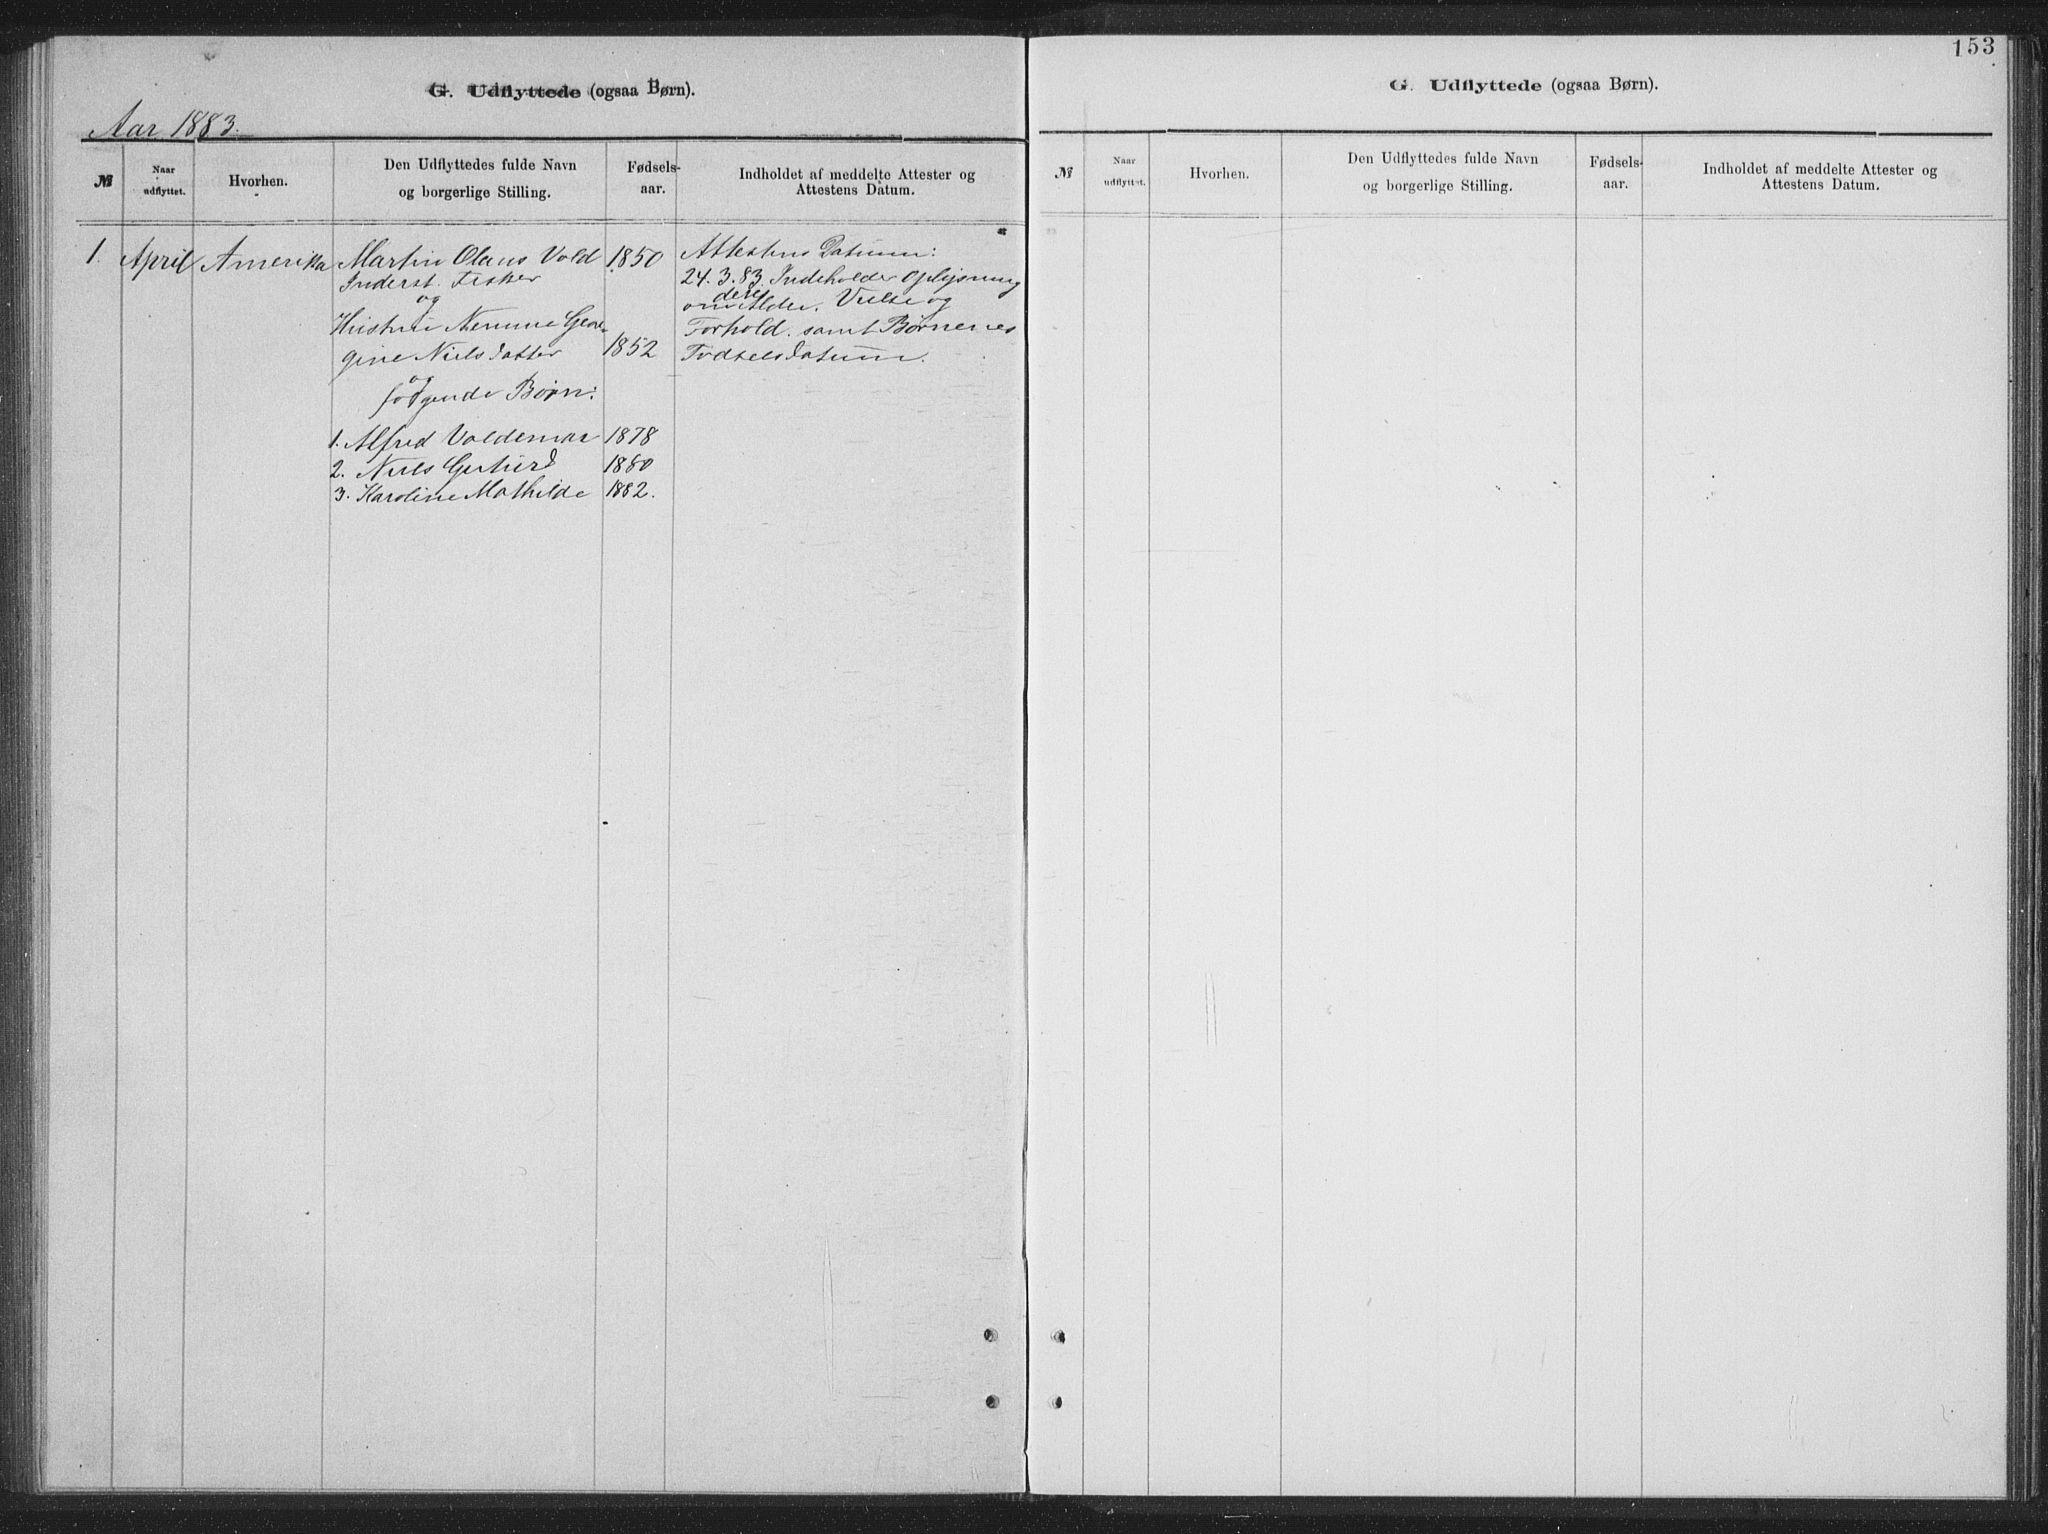 G. Udflyttede (ogsaa Børn).
Aar 1883.
№
Naar udflyttet.
Hvorhen.
Den Udflyttedes fulde Navn
og borgerlige Stilling.
Fødsels-
aar.
Indholdet af meddelte Attester og
Attestens Datum.
1. April Amerika Martin Olaus Vold 1850 Attestens Datum:
Inderst. Fisker 24.3.83. Indeholder Oplysning
og dere
om Alder. Vielse og
Hustru Georgine Forhold. samt Børnenes
gine Nielsdatter 1852 Fødselsdatum.
og
følgende Børn:
1. Alfred Valdemar 1878
2. Niels 1880
3. Karoline Mathilde 1882.
153
G. Udflyttede (ogsaa Børn).
№
Naar
udflyttet.
Hvorhen.
Den Udflyttedes fulde Navn
og borgerlige Stilling.
Fødsels-
aar.
Indholdet af meddelte Attester og
Attestens Datum.